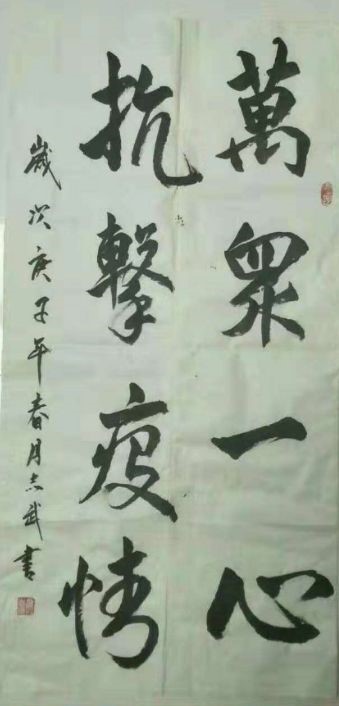 萬眾一心
抗擊疫情
歲次庚子年春月志武書